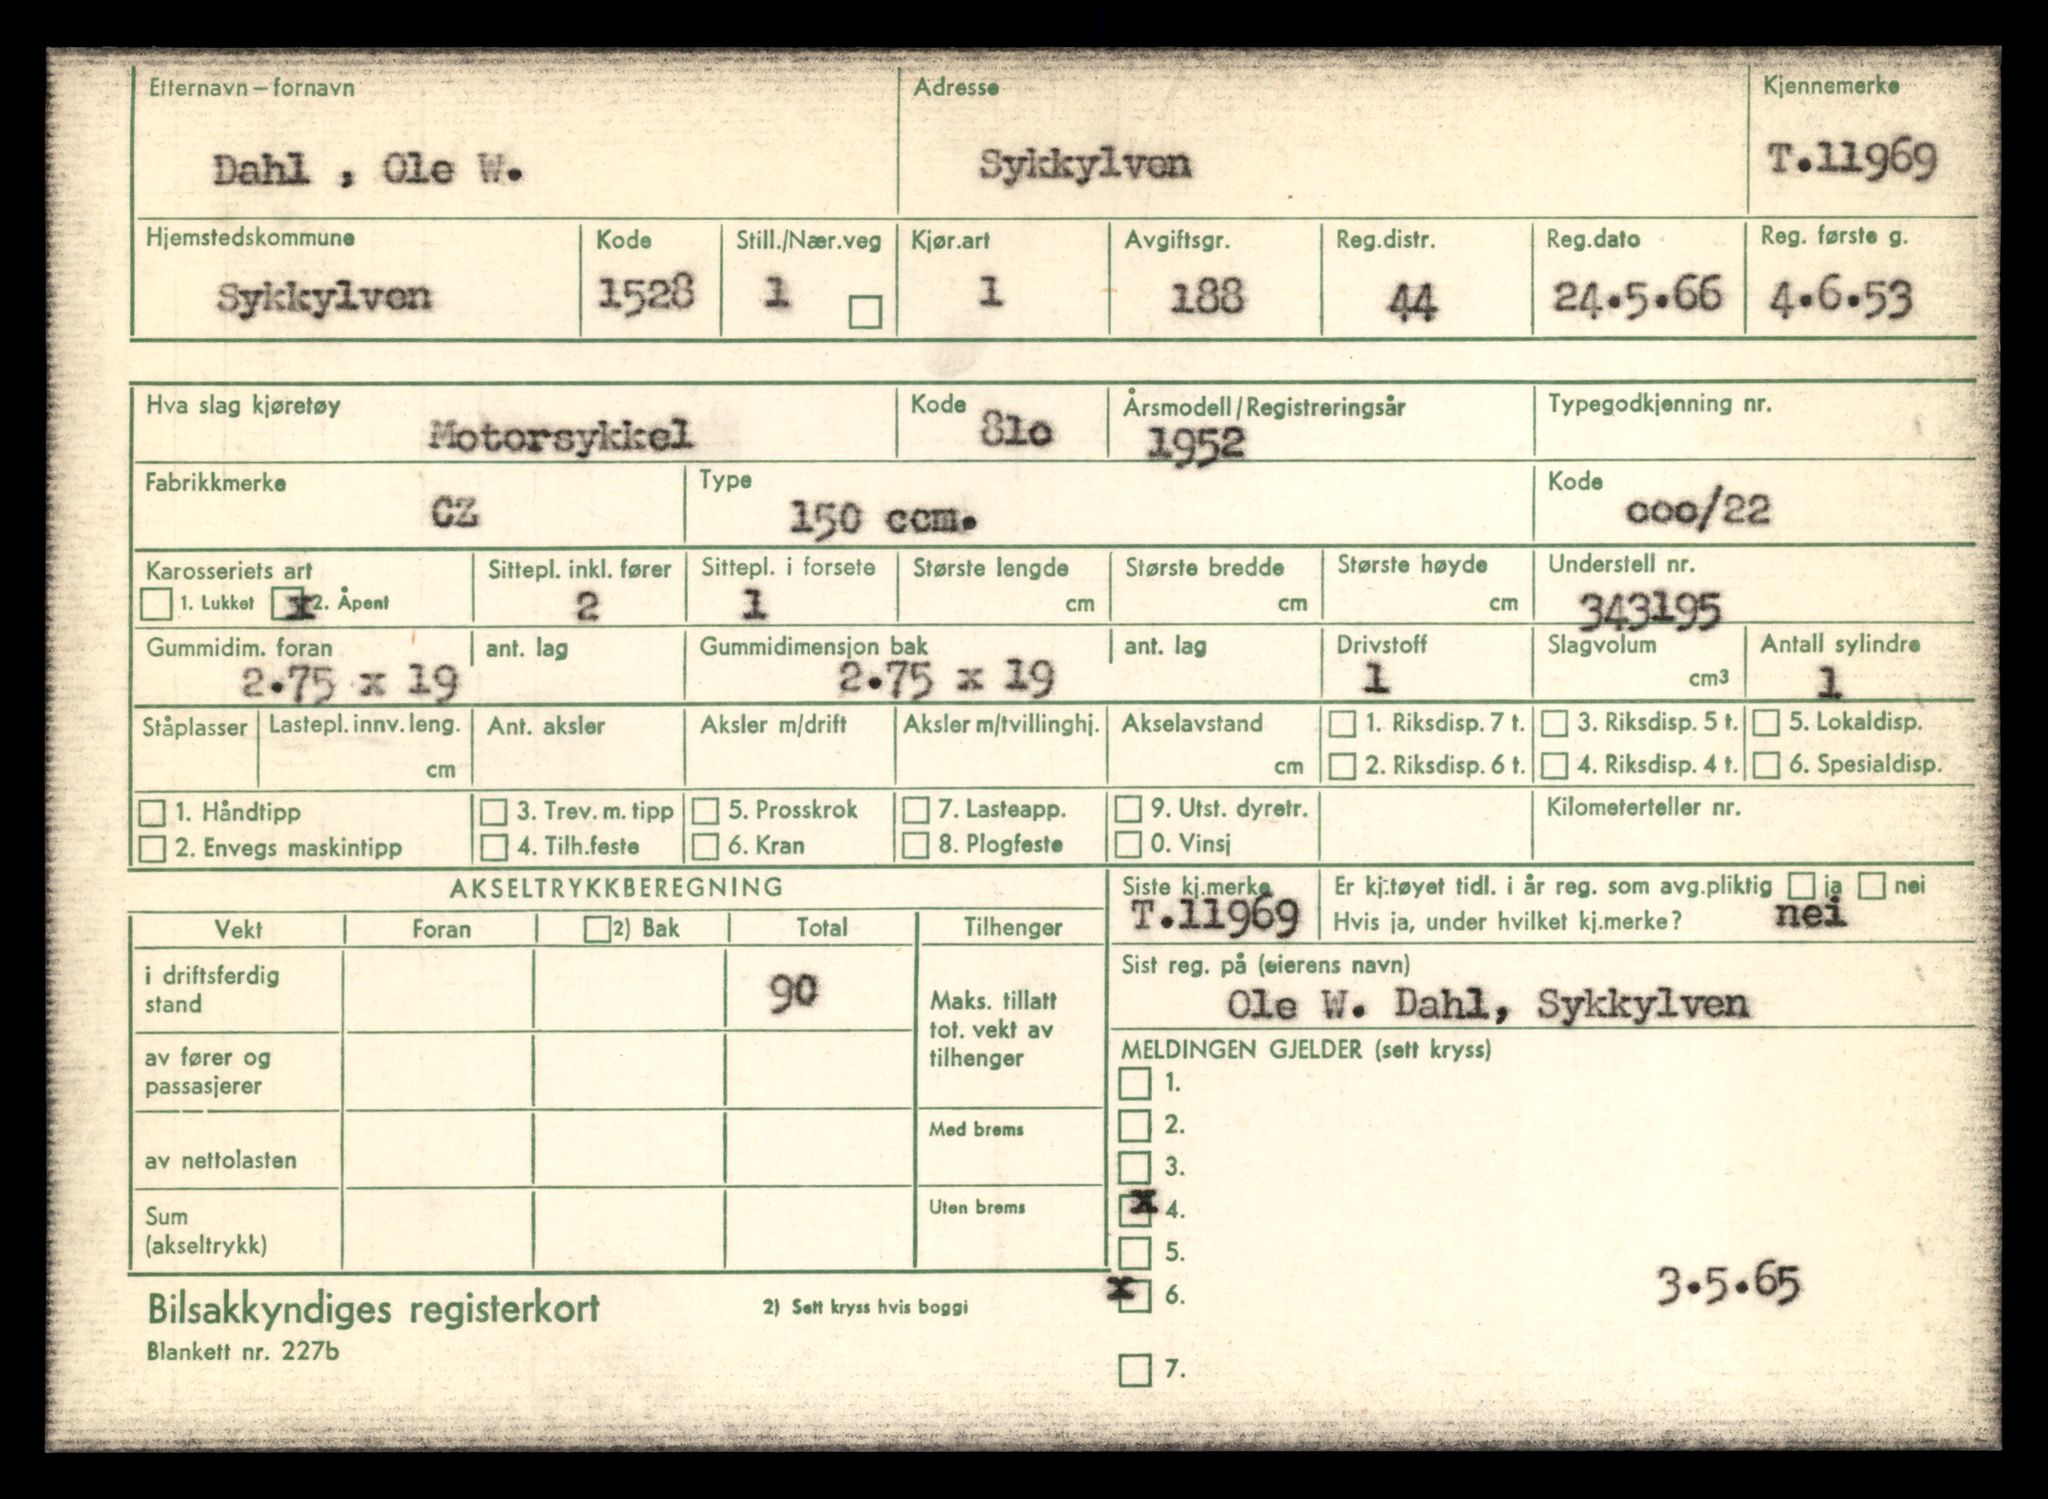 Etternavn – fornavn Adresse Kjennemerke
Dahl , Ole W. Sykkylven T.11969
Hjemstedskommune Kode Still./Nær.veg Kjør.art Avgiftsgr. Reg.distr. Reg.dato Reg. første g.
Sykkylven 1528 1 1 188 44 24.5.66 4.6.53
Hva slag kjøretøy Kode Årsmodell/Registreringsår Typegodkjenning nr.
Motorsykkel 81o 1952
Fabrikkmerke Type Kode
CZ 150 ccm. ooo/22
Karosseriets art Sittepl. inkl. fører Sittepl. i forsete Største lengde Største bredde Største høyde Understell nr.
1. Lukket x 2. Åpent 2 1 cm cm cm 343195
Gummidim. foran ant. lag Gummidimensjon bak ant. lag Drivstoff Slagvolum Antall sylindre
2.75 x 19 2.75 x 19 1 cm3 1
Ståplasser Lastepl. innv. leng. Ant. aksler Aksler m/drift Aksler m/tvillinghj. Akselavstand 1. Riksdisp. 7 t. 3. Riksdisp. 5 t. 5. Lokaldisp.
cm cm 2. Riksdisp. 6 t. 4. Riksdisp. 4 t. 6. Spesialdisp.
1. Håndtipp 3. Trev. m. tipp 5. Prosskrok 7. Lasteapp. 9. Utst. dyretr. Kilometerteller nr.
2. Envegs maskintipp 4. Tilh.feste 6. Kran 8. Plogfeste 0. Vinsj
AKSELTRYKKBEREGNING Siste kj.merke Er kj.tøyet tidl. i år reg. som avg.pliktig ja nei
T.11969 Hvis ja, under hvilket kj.merke? nei
Vekt Foran 2) Bak Total Tilhenger
Sist reg. på (eierens navn)
i driftsferdig
stand 90 Maks. tillatt
tot. vekt av
tilhenger
Ole W. Dahl, Sykkylven
av fører og
passasjerer
MELDINGEN GJELDER (sett kryss)
1.
2.
Med brems
av nettolasten
3.
Uten brems
x 4.
Sum
(akseltrykk)
5.
x 6. 3.5.65
Bilsakkyndiges registerkort 2) Sett kryss hvis boggi
Blankett nr. 227b
7.